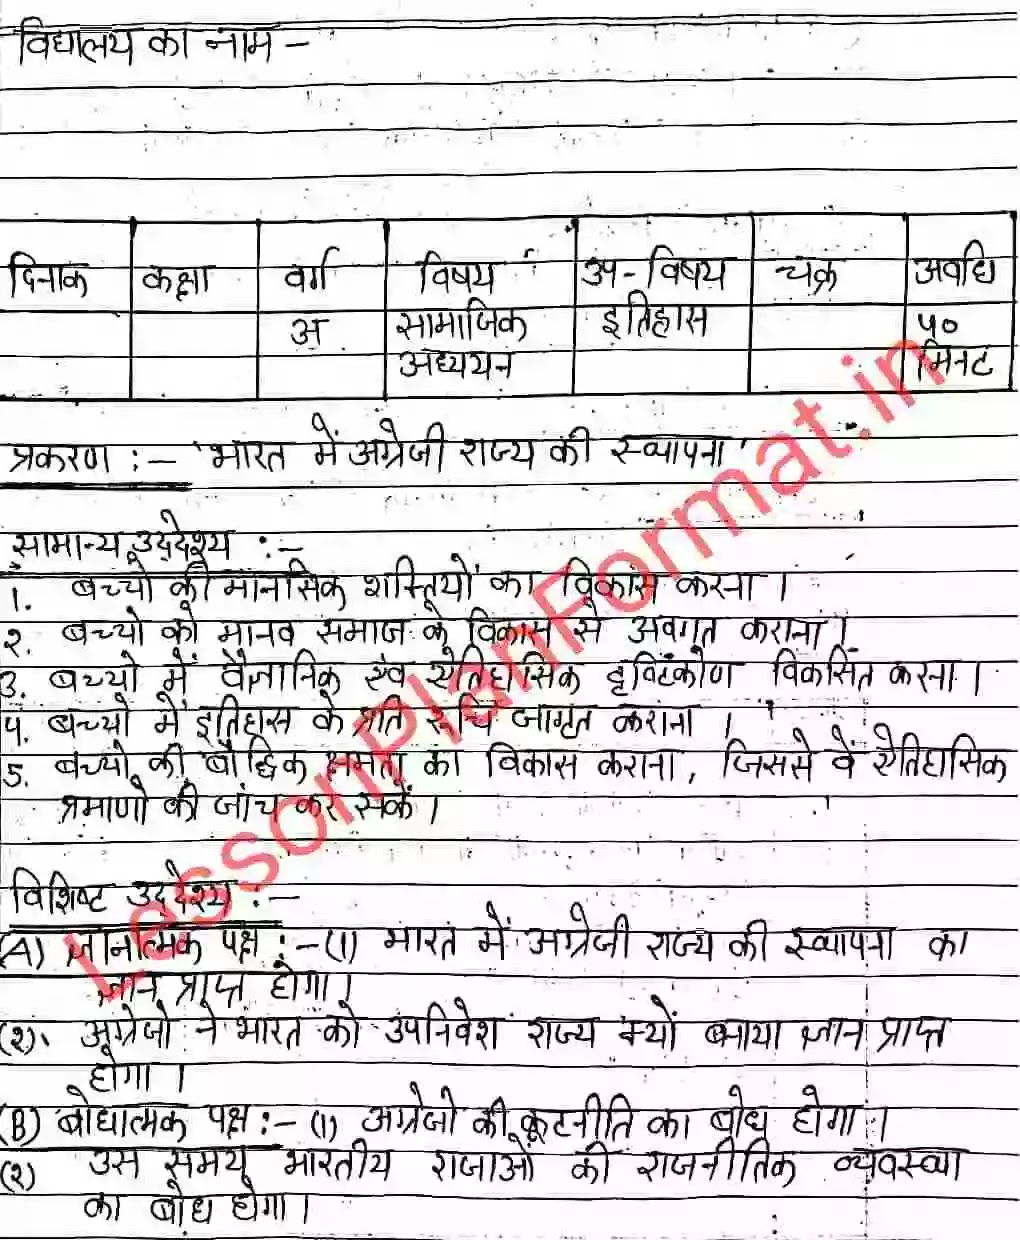 विद्यालय का नाम –
दिनाक कक्षा वर्ग विषय उप-विषय चक्र अवधि
अ सामाजिक इतिहास ५०
अध्ययन मिनट
प्रकरण :– 'भारत में अग्रेजी राज्य की स्थापना'
सामान्य उद्देश्य :–
1. बच्चो की मानसिक शक्तियों का विकास करना ।
२. बच्चो को मानव समाज के विकास से अवगत कराना ।
3. बच्चो में वैज्ञानिक एंव ऐतिहासिक दृष्टिकोण विकसित करना ।
५. बच्चो में इतिहास के प्रति रूचि जागृत कराना ।
5. बच्चो की बौद्धिक क्षमता का विकास कराना, जिससे वें ऐतिहासिक
प्रमाणो की जांच कर सकें ।
विशिष्ट उद्देश्य :–
(A) ज्ञानात्मक पक्ष :– (1) भारत में अग्रेजी राज्य की स्थापना का
ज्ञान प्राप्त होगा ।
(२). अग्रेजो ने भारत को उपनिवेश राज्य क्यों बनाया ज्ञान प्राप्त
होगा ।
(B) बोधात्मक पक्ष :– (1) अग्रेजो की कूटनीति का बोध होगा ।
(२) उस समय भारतीय राजाओं की राजनीतिक व्यवस्था
का बोध होगा ।
LessonPlanFormat.in